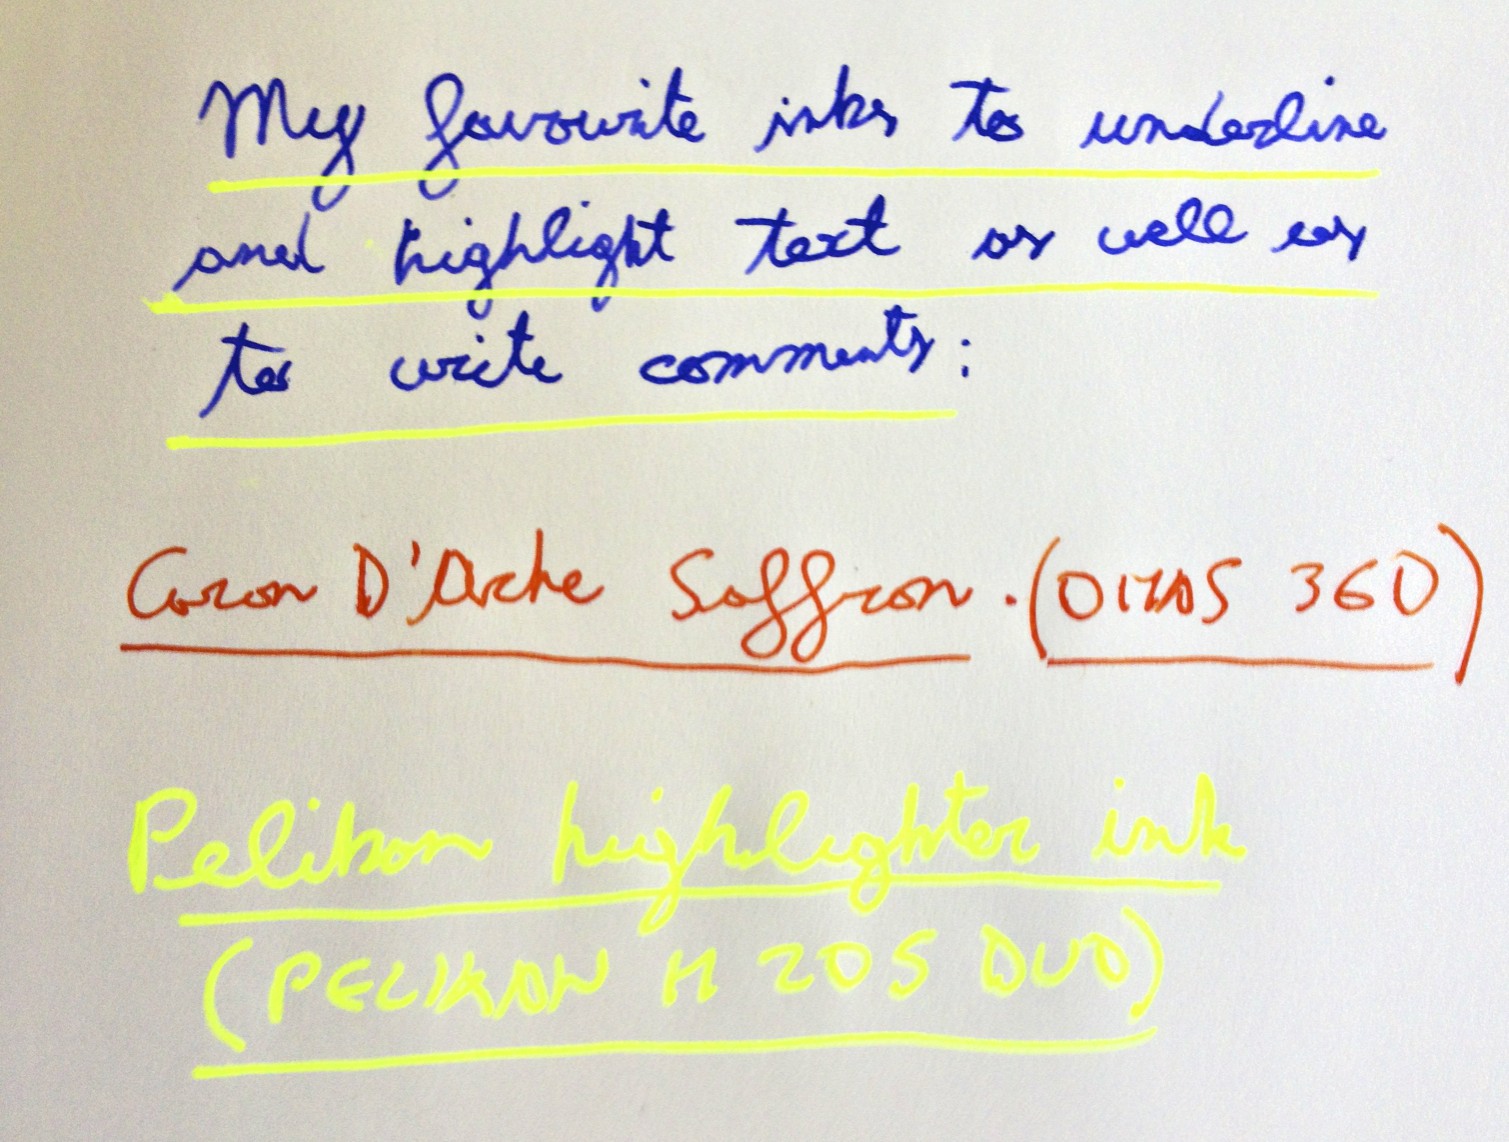 My favourite inks to underline
and highlight text as well as
to write comments:
Caran D'Ache Saffron. (OMAS 360)
Pelikan highlighter ink
(PELIKAN M 205 DUO)